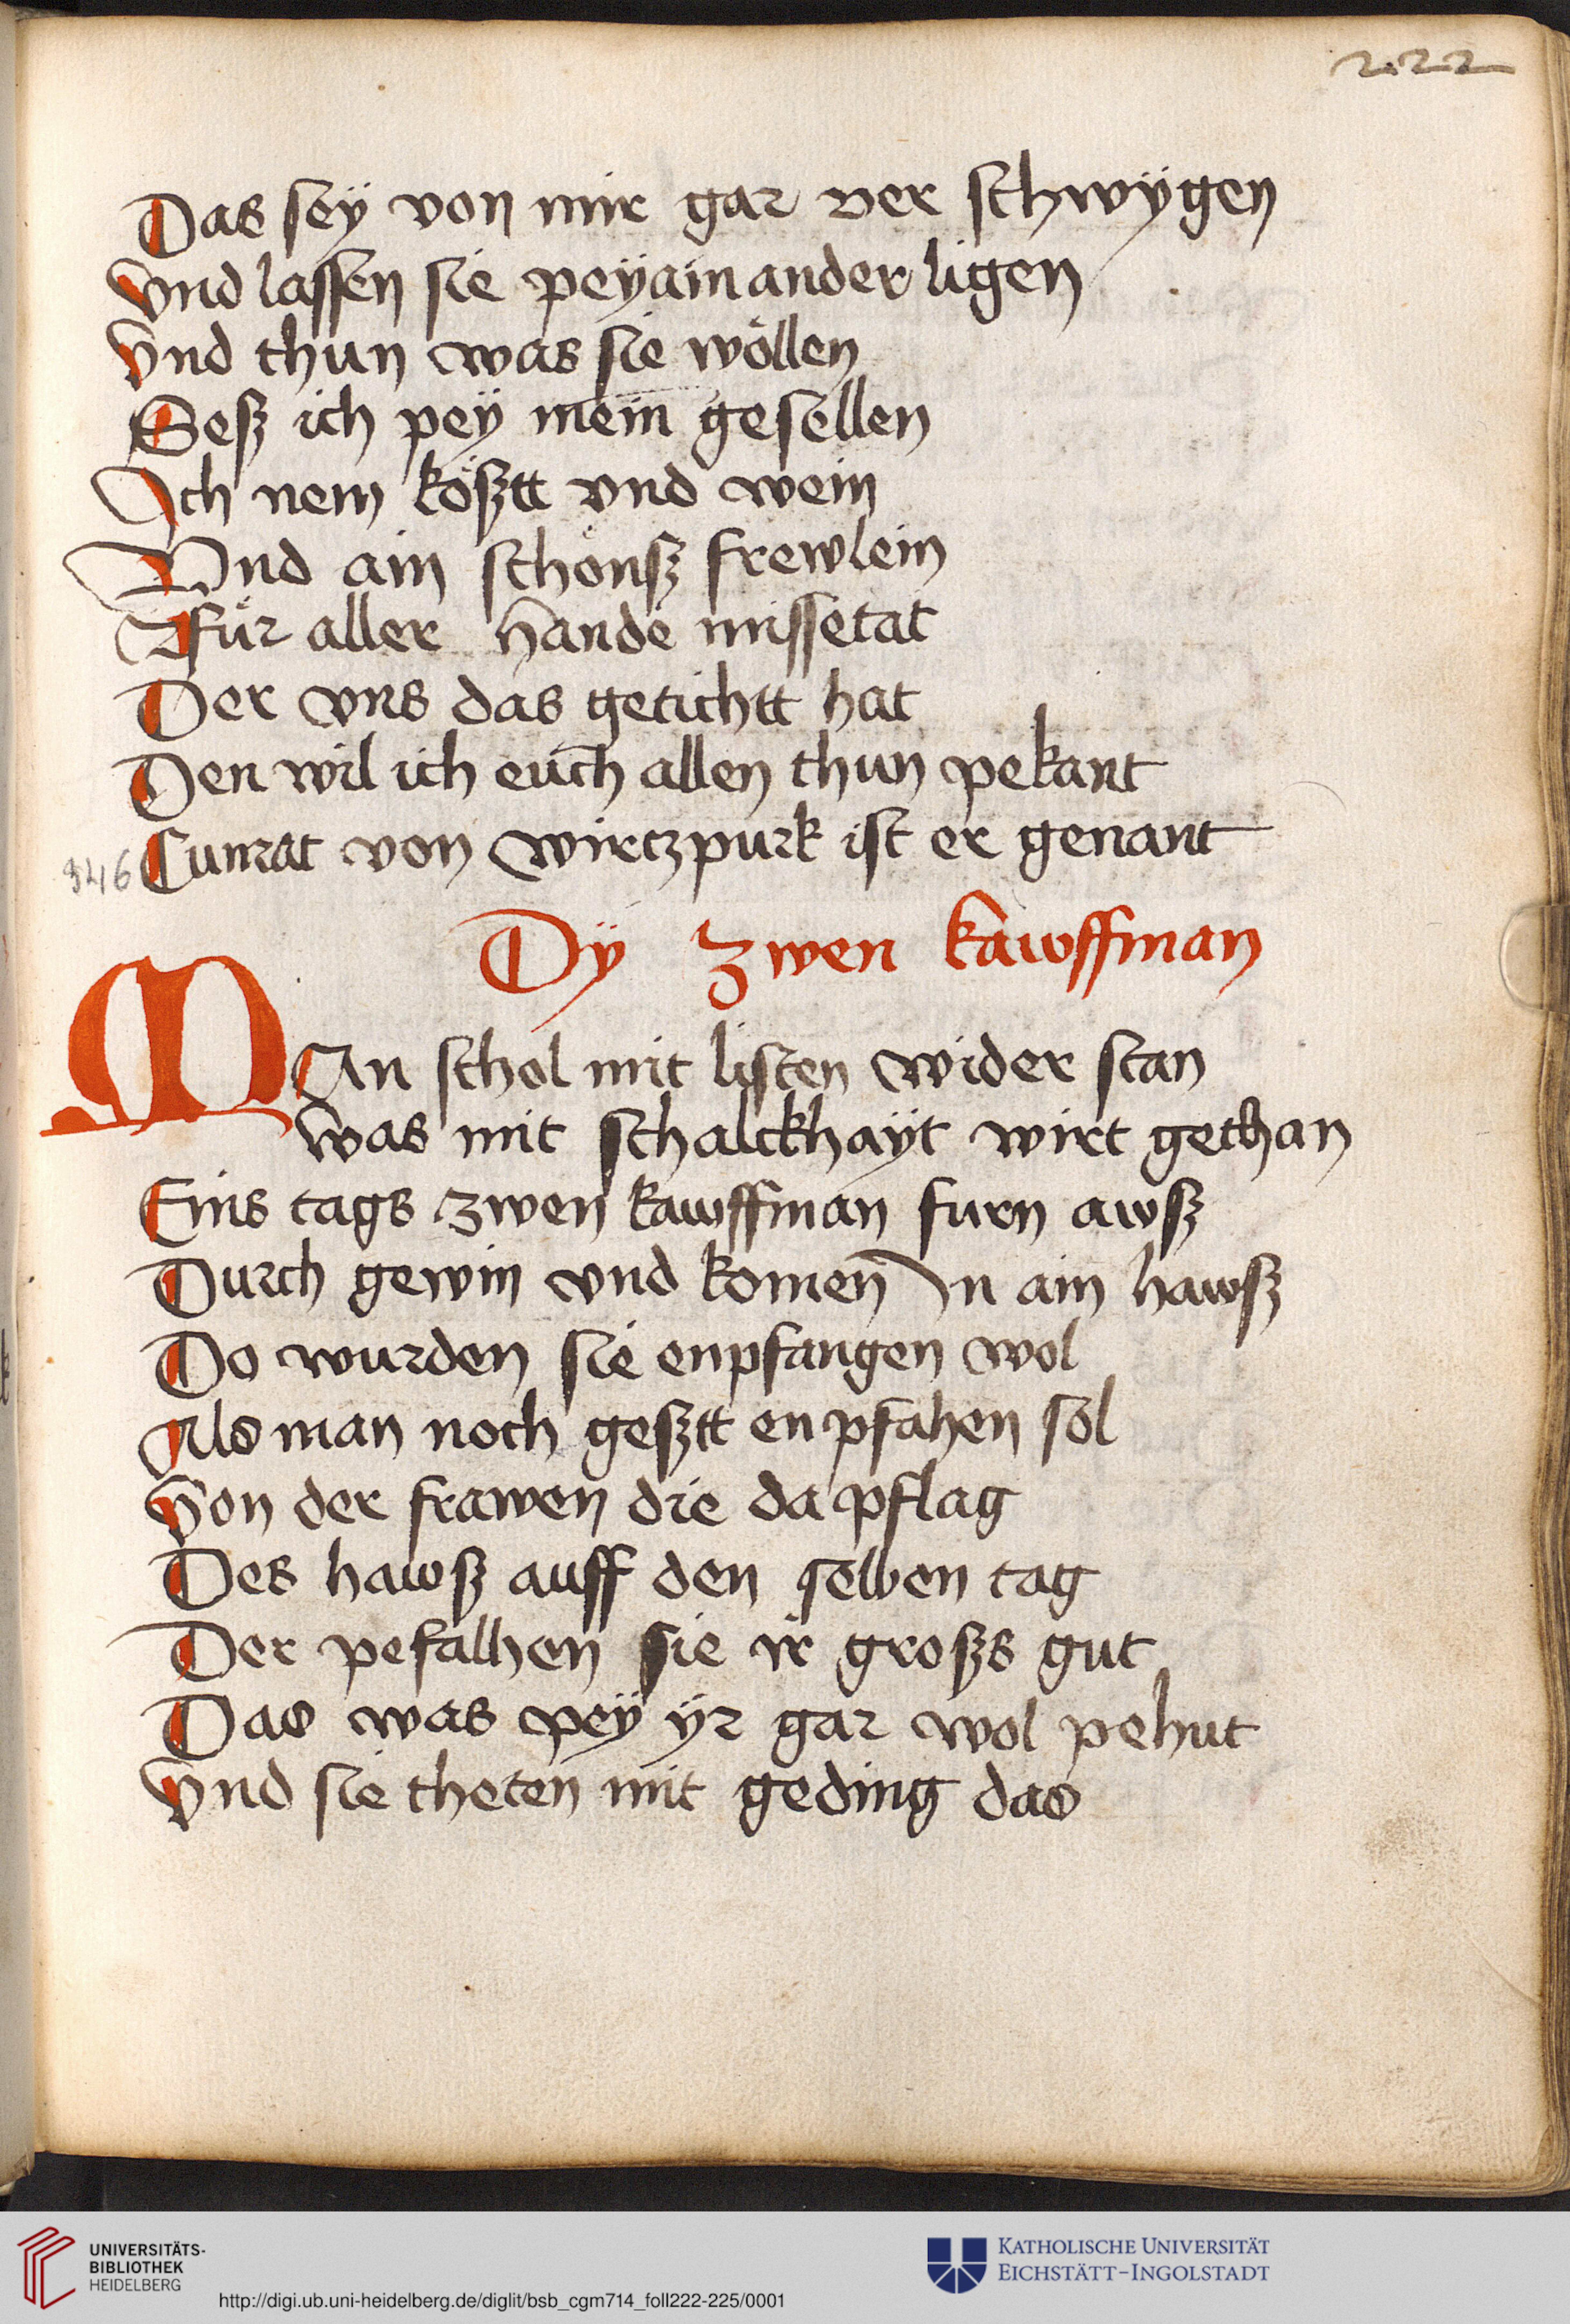 222
Das seÿ von mir gar ver schwÿgen
Vnd lassen sie peÿ ain ander ligen
Vnd thun was sie wöllen
Sesz ich peÿ mein gesellen
Ich nem kösztt vnd wein
Vnd ain schönsz frewlein
Für aller hande missetat
Der vns das getichtt hat
Den wil ich euch allen thun pekant
346 Cunrat von wirczpurk ist er genant
Dÿ zwen kawffman
MAn schol mit listen wider stan
was mit schalckhaÿt wirt gethan
Eins tags zwen kawffman furn awsz
Durch gewin vnd komen In ain hawsz
Do wurden sie enpfangen wol
Als man noch gesztt enpfahen sol
Von der frawen die da pflag
Des hawsz auff den selben tag
Der pefalhen sie ir groszs gut
Das was peÿ ÿr gar wol pehut
Vnd sie theten mit geding das
UNIVERSITÄTS-
BIBLIOTHEK
HEIDELBERG
http://digi.ub.uni-heidelberg.de/diglit/bsb_cgm714_foll222-225/0001
KATHOLISCHE UNIVERSITÄT
EICHSTÄTT-INGOLSTADT